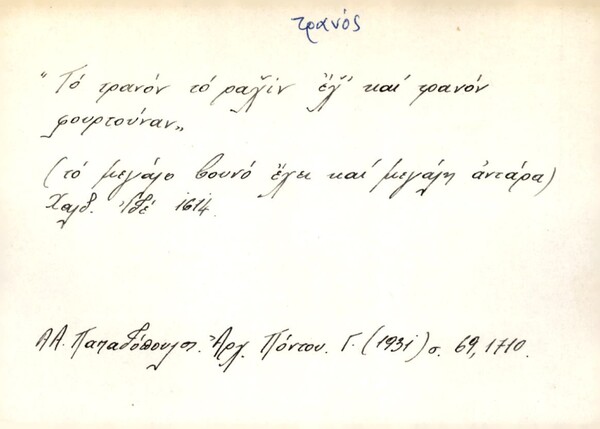 τρανός
"Τό τρανόν τό ραχ̌ίν ἔχ̌' καί τρανόν
φουρτούναν„
(τό μεγάλο βουνό ἔχει καί μεγάλη ἀντάρα)
Χαλδ. 1614.
Α.Α. Παπαδόπουλος. Ἀρχ. Πόντου. Γ. (1931) σ. 69, 1710.